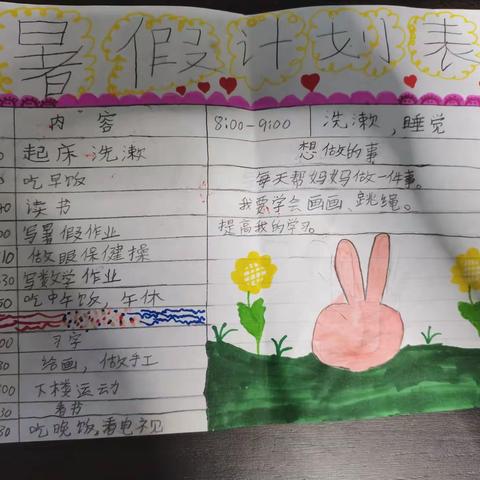 暑假计划表
内容
8:00-9:00 洗漱,睡觉
起床 洗漱
想做的事
吃早饭
每天帮妈妈做一件事。
读书
我要学会画画、跳绳。
写暑假作业
提高我的学习。
做眼保健操
写数学作业
吃中午饭,午休
习字
绘画,做手工
下楼运动
看书
吃晚饭,看电视